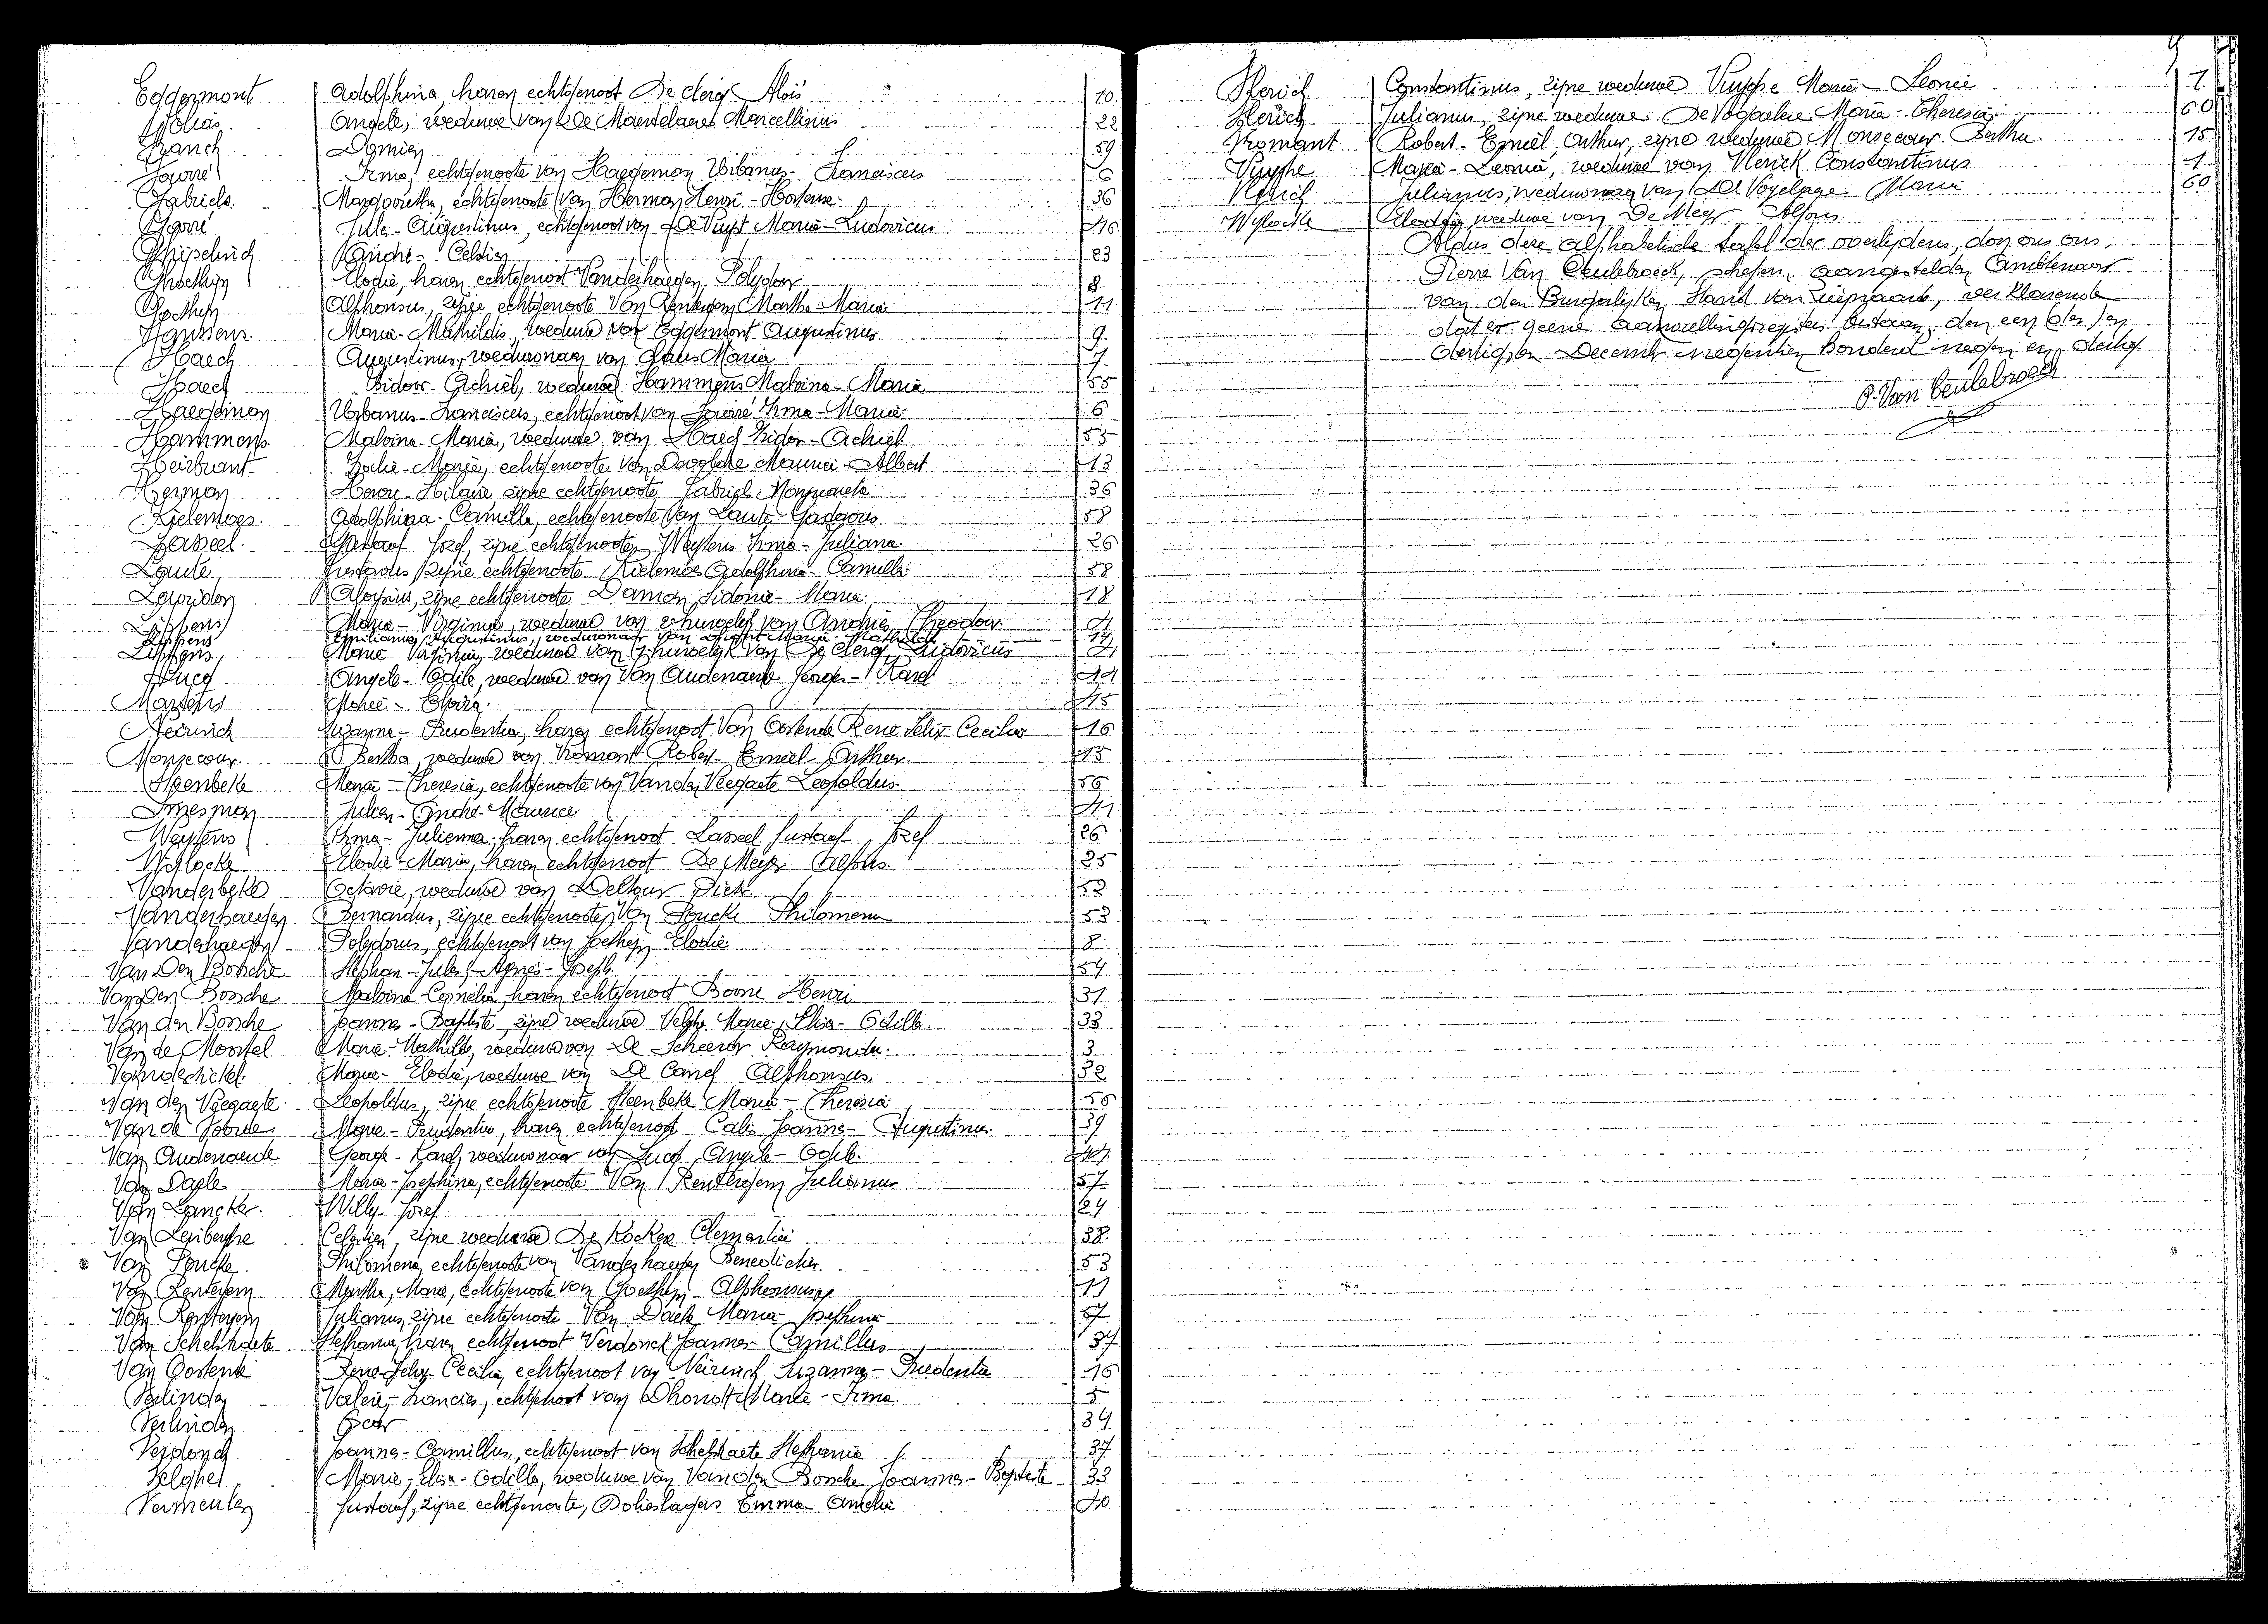 Eggermont Adolphina, haren echtgenoot De clerq Aloïs 10
Angele, weduwe van De Maertelaere Marcellinus 22
Franck Damien 59
Favoré Irma, echtgenoote van Haegeman Urbanus - Franciscus 6
Gabriels Margaretha, echtgenoote van Herman Henri - Hortense 36
Jules - Augustinus, echtgenoot van De Vuyst Maria - Ludovicus 46
Ghijselinck André - Celstin 23
Goethijn Elodie, haren echtgenoot Vanderhaegen Polydoor 8
Goethijn Alphonsus, zijne echtgenoote Van Renterghem Martha - Maria 11
Hanssens Maria - Mathildis, weduwe van Eggermont Augustinus 9
Haeck Augustinus, weduwnaar van Claus Maria 7
Haeck Isidoor - Achiel, weduwe Hammens Malvina - Maria 55
Haegeman Urbanus - Franciscus, echtgenoot van Irma - Maria 6
Hammens Malvina - Maria, weduwe van Haeck Isidor - Achiel 55
Heirbrant Julie - Maria, echtgenoote van Maurice - Albert 13
Herman Henri - Hilaire zijne echtgenoote Gabriels Margareta 36
Kielemoes Adolphina - Camilla, echtgenoote van Laute Gustavus 58
Lasseel Gustaaf Jozef, zijne echtgenoote Weytens Irma - Juliana 26
Laute Gustavus, zijne echtgenoote Kielemoes Adolphina - Camilla 58
Lauridon Aloysius, zijne echtgenoote Daman Sidonie - Maria 18
Lippens Maria - Virginia, weduwe van 1 huwelijk van Andries Theodoor 4
Lippens Emilianus, Augustinus, weduwnaar van Maria - Mathilde 14
Lippens Maria Virginia, weduwe van 2 huwelijk van De clerq Ludovicus 4
Lucq Angele - Odile, weduwe van Van Audenaerde George - Karel 44
Martens Maria - Elvira 45
Neirinck Suzanna - Prudentia, haren echtgenoot Van Oostende Rene Felix Cecilia 16
Monsecour Bertha, weduwe van Vromant Robert - Emiel - Arthur 15
Steenbeke Maria - Theresia, echtgenoote van Van den Veegaete Leopoldus 56
Smesman Julien - André - Maurice 41
Weytens Irma - Juliana, haren echtgenoot Lasseel Gustaaf Jozef 26
Wylocke Elodie - Maria, haren echtgenoot De Meyer Alfons 25
Vanderbeke Octavie, weduwe van Deltour Pieter 52
Vanderhaegen Bernardus, zijne echtgenoote Van Poucke Philomena 53
Vanderhaegen Polydorus, echtgenoot van Goethijn Elodie 8
Van Den Bossche Stephan - Jules - Agnes - Joseph 54
Van Den Bossche Malvina - Cornelia, haren echtgenoot Boone Henri 31
Van den Bossche Joannes - Baptiste, zijne weduwe Velghe Marie, Elisa - Odilla 33
Van de Moortel Maria - Mathilde, weduwe van De Scheerder Raymondus 3
Vanderstickel Maria - Elodie, weduwe van De Camel Alphonsus 32
Van den Veegaete Leopoldus, zijne echtgenoote Steenbeke Maria - Theresia 56
Van de Voorde Marie - Prudentia, haren echtgenoot Calis Joannes - Augustinus 39
Van Audenaerde George - Karel, weduwnaar van Lucq Angele - Odile 44
Van Daele Maria - Josephina, echtgenoote Van Renterghem Julianus 57
Van Lancker Willy - Jozef 24
Van Leirberghe Celestien, zijne weduwe De Kocker Clementia 38
Van Poucke Philomena, echtgenoote van Vanderhaegen Benedictus 53
Van Renterghem Martha, Marie, echtgenoote van Goethijn Alphonsus 11
Van Renterghem Julianus, zijne echtgenoote Van Daele Maria - Josephina 57
Van Schelstraete Stephanie, haren echtgenoot Verdonck Joannes - Camillus 37
Van Oostende Rene - Felix Cecilia, echtgenoot van Neirinck Suzanna - Prudentia 16
Verlinden Valere - Francies, echtgenoot van Dhondt Marie - Irma 5
Verlinden Oscar 34
Verdonck Joannes - Camillus, echtgenoot van Schelstraete Stephanie 37
Velghe Marie - Elisa - Odilla, weduwe van Van den Bossche Joannes - Baptiste 33
Vermeulen Gustaaf, zijne echtgenoote, Dolieslagers Emma - Amelie 40
Vlerick Constantinus, zijne weduwe Vuyghe Maria - Leonie 1
Vlerick Julianus, zijne weduwe De Vogelaere Maria - Theresia 60
Vromant Robert - Emiel, Arthur, zijne weduwe Monsecour Bertha 15
Vuyghe Maria - Leonia, weduwe van Vlerick Constantinus 1
Vlerick Julianus, weduwnaar van De Vogelaere Maria 60
Wylocke Elodie, weduwe van De Meyer Alfons
Aldus deze alphabetische tafel der overlijdens, door ons ons,
Pierre Van Ceulebroeck, schepen, aangestelden Ambtenaar
van den Burgerlijken Stand van verklarende
dat er geene aanvullingsregisters bestaan, den een en
dertigsten December negentien honderd negen en dertig.
P. Van Ceulebroeck